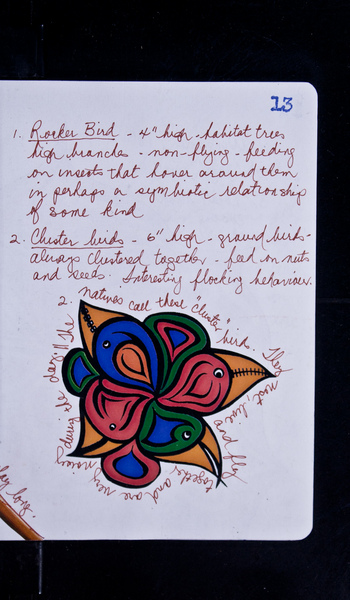 13
1. Rocker Bird - 4" high - habitat trees
high branches - non-flying - feeding
on insects that hover around them
in perhaps a symbiotic relationship
of some kind
2. Cluster birds - 6" high - ground birds -
always clustered together - feed on nuts
and seeds. Interesting flocking behaviour.
2. natives call these "cluster" birds. They nest, live and fly together and are very noisy during the day. All the
day long.